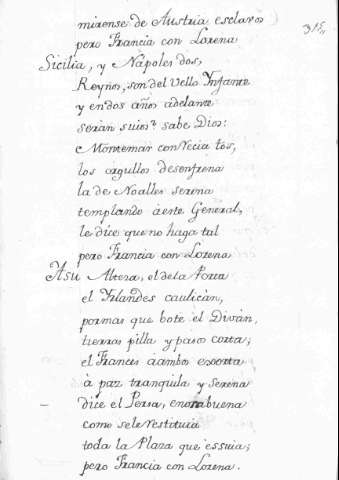 315
mirense de Austria esclavos
pero Francia con Lorena
Sicilia, y Nápoles dos,
Reynos, son del vello Ynfante
y en dos años adelante
serán suios sabe Dios:
Montemar con Vecia tos,
los orgullos desenfrena
la de Noalles serena
templando áeste General,
le dice que no haga tal
pero Francia con Lorena
Asu Alteza, el dela Porta
el Yrlandes caulicán,
por mas que bote el Diván,
tierras pilla y pasos corta;
el Frances áambos exorta
á paz tranquila y serena
dice el Persa, enorabuena
como sele restituia
toda la Plaza que essuia;
pero Francia con Lorena.